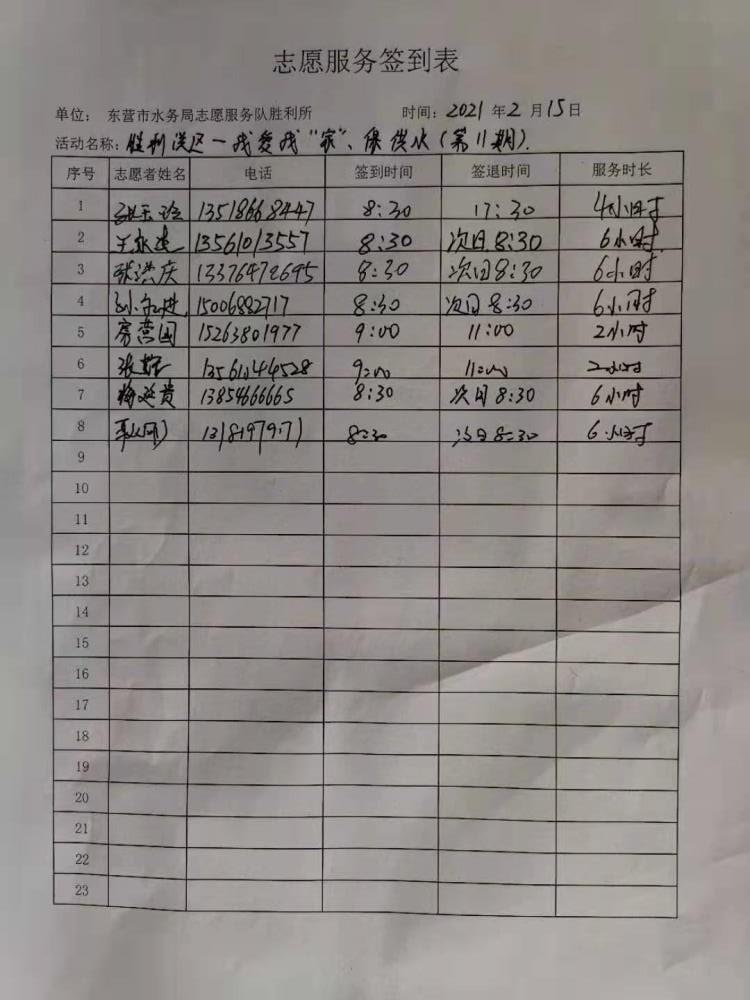 志愿服务签到表
单位： 东营市水务局志愿服务队胜利所 时间：2021 年 2 月 15 日
活动名称：胜利湾区一我爱我“家”、保供水（第11期）.
序号 志愿者姓名 电话 签到时间 签退时间 服务时长
1 13518668447 8:30 17:30 4小时
2 13561013557 8:30 次日 8:30 6小时
3 张洪庆 13376472695 8:30 次日 8:30 6小时
4 15006882717 8:30 次日 8:30 6小时
5 房营国 15263801977 9:00 11:00 2小时
6 13561044528 9:00 11:00 2小时
7 梅延贵 13854666665 8:30 次日 8:30 6小时
8 8:30 次日 8:30 6小时
9
10
11
12
13
14
15
16
17
18
19
20
21
22
23